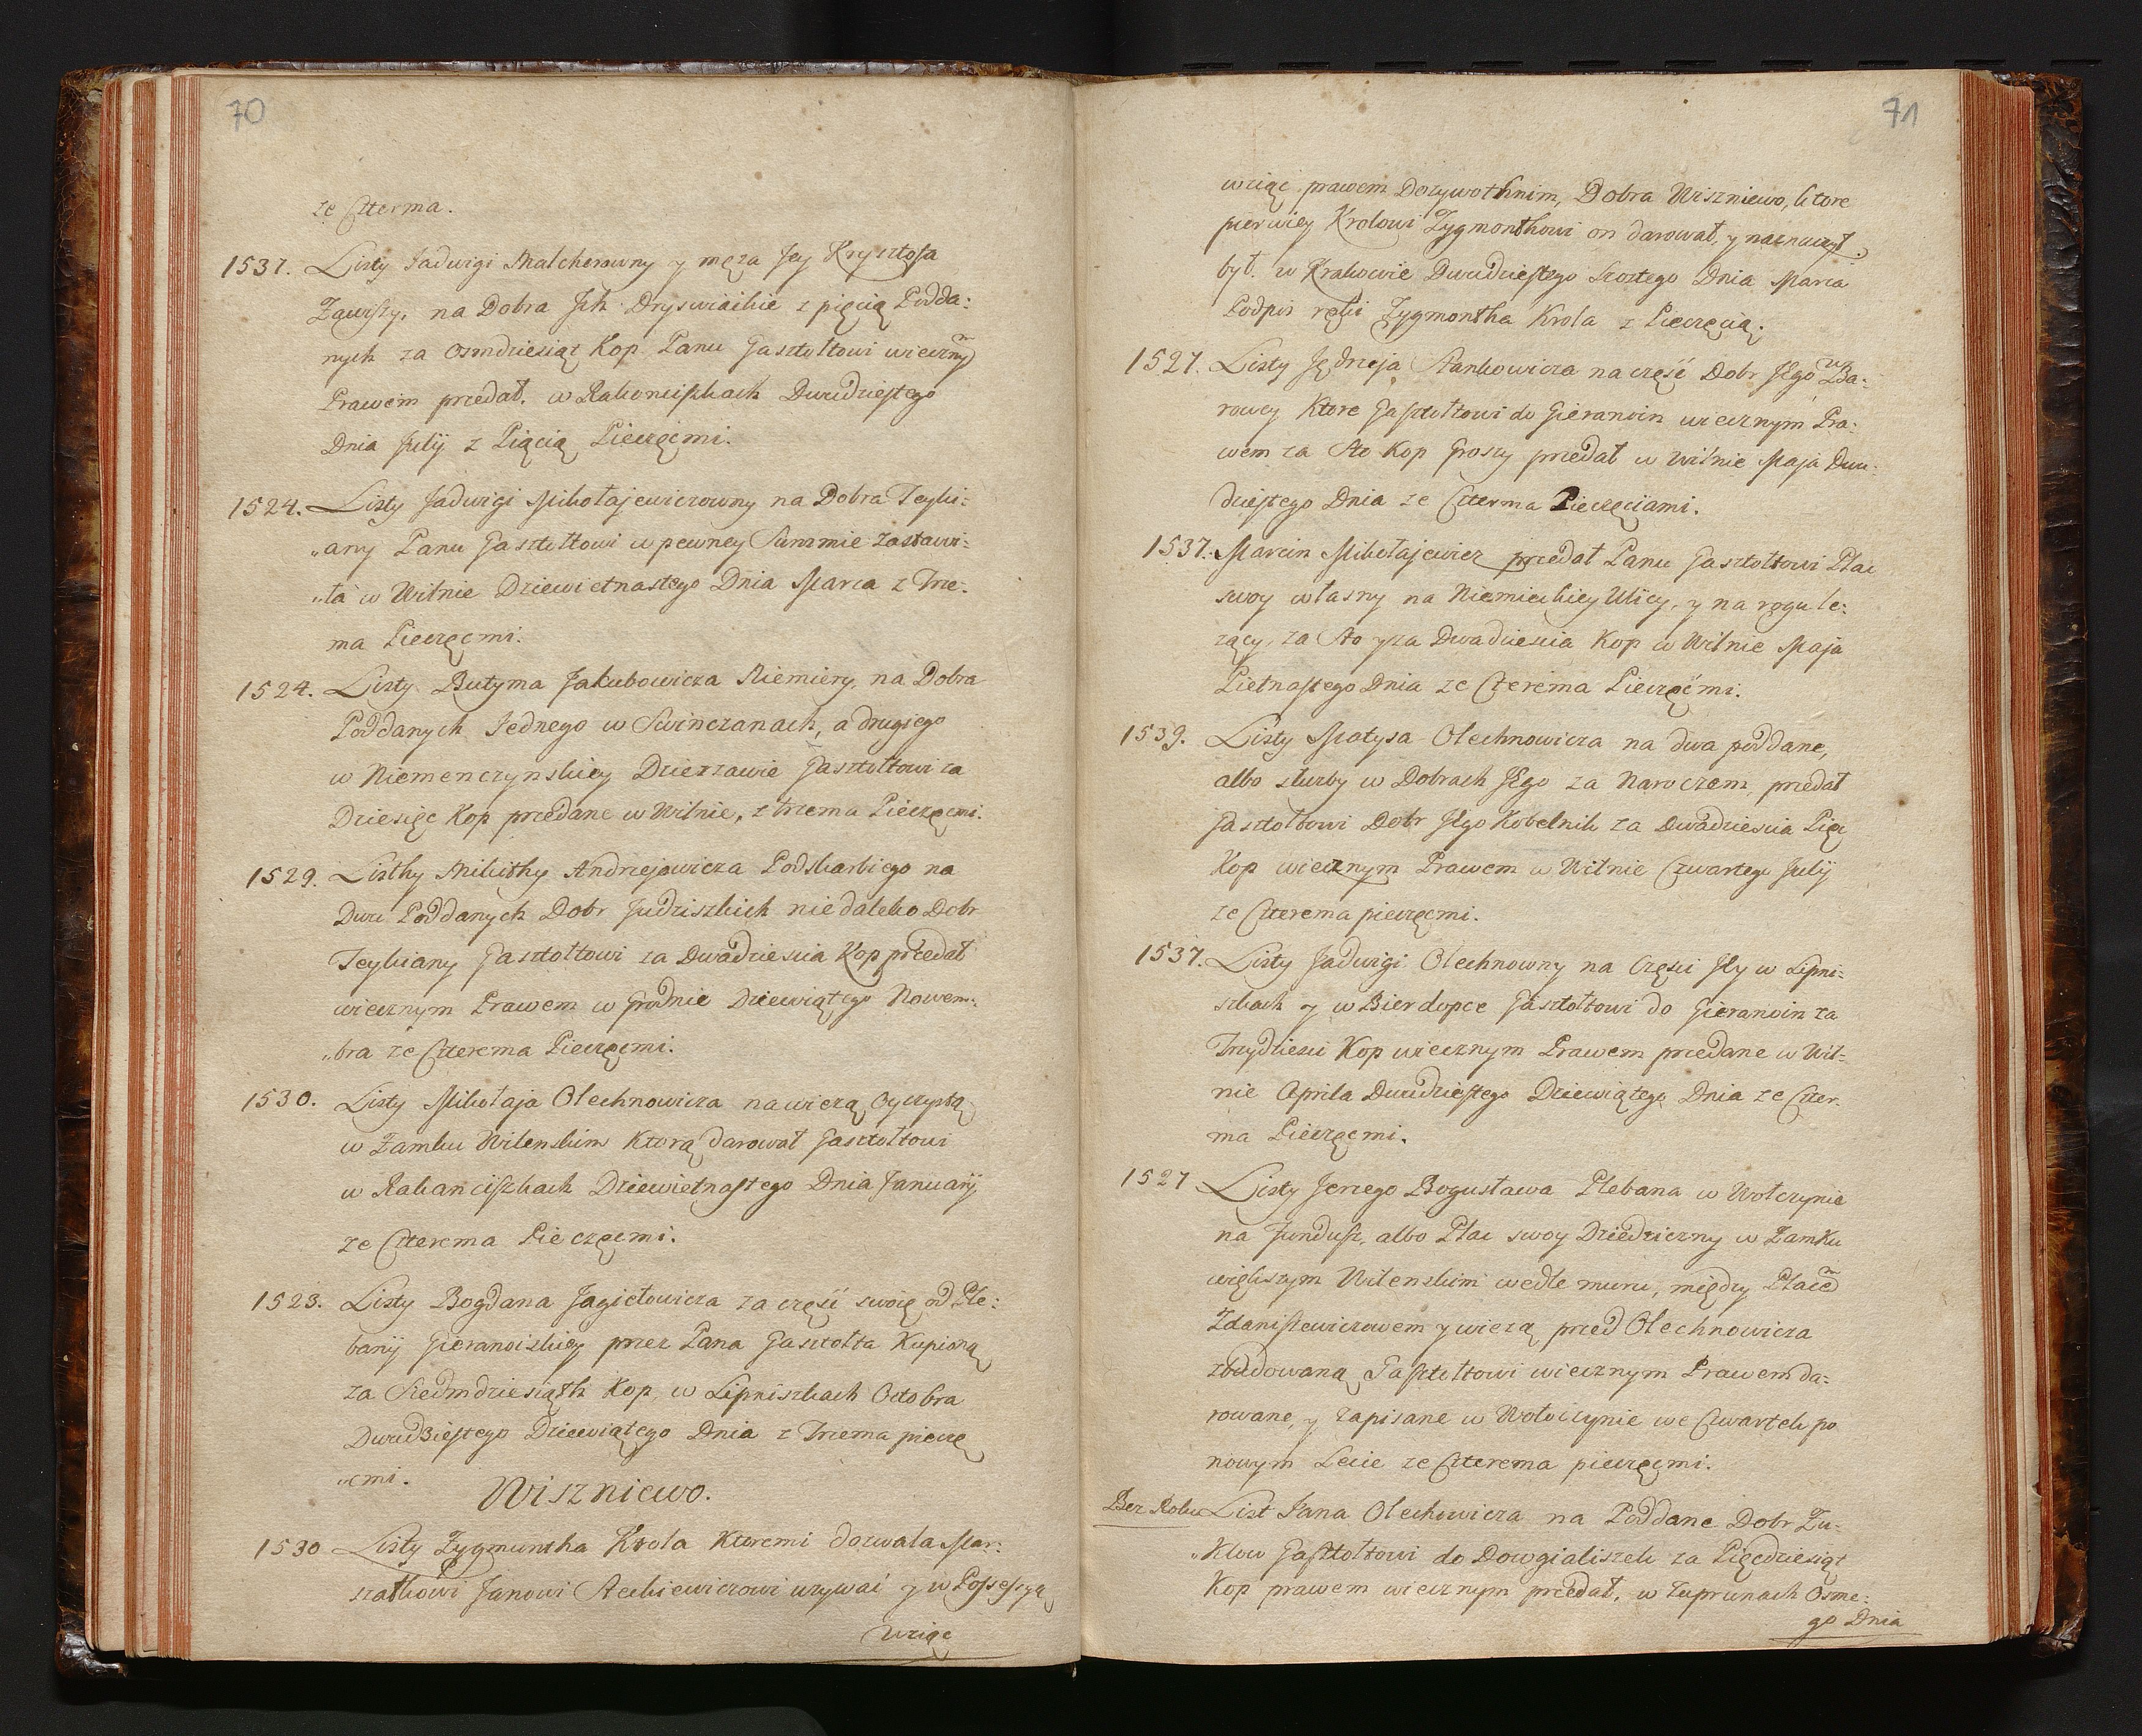 70
ze Czterma.
1537. Listy Jadwigi Malcherowny y męza Jey Krysztofa
Zawiszy, na Dobra Jch Dryswiaikie z pięcią Podda:
nych za osmdziesiąt Kop Panu Gasztoltowi wiecznỹ
Prawem przedał. w Rakonciszkach Dwudziestego
Dnia Julij z Piącią Pieczęćmi.
1524. Listy Jadwigi Mikołajewiczowny na Dobra Teyki:
„any Panu Gasztoltowi w pewney Summie zastawi:
„ła w Wilnie Dziewietnastego Dnia Marca z Trze:
ma Pieczęcmi.
1524. Listy Butyma Jakubowicza Niemiery, na Dobra
Poddanych Jednego w Swinczanach, a drugiego
w Niemenczynskiey Dzierzawie Gasztoltowi za
Dziesięc Kop przedane w Wilnie, z trzema Pieczęcmi.
1529. Listhy Mikithy Andrzejowicza Podskarbiego na
Dwu Poddanych Dobr Judziszkich niedaleko Dobr
Teykiany Gasztoltowi za Dwadziescia Kop przedał
wiecznym Prawem w Grodnie Dziewiątego Nowem:
„bra ze Czterema Pieczęcmi.
1530. Listy Mikołaja Olechnowicza na wiezą Oyczystą
w Zamku Wilenskim Ktorą darował Gasztoltowi
w Rakanciszkach Dziewietnastego Dnia Januarij
ze Czterema Pieczęcmi.
1523. Listy Bogdana Jagiełowicza za część swoię od Ple:
banij Gieranoiskiey przez Pana Gasztołta Kupioną
za Siedmdziesiąth Kop, w Lipniszkach Octobra
Dwudziestego Dziewiątego Dnia z Trzema pieczę
„cmi.
Wiszniewo.
1530 Listy Zygmuntha Krola Ktoremi dozwala Mar:
szałkowi Janowi Steckiewiczowi uzywać y w Possessyą
wziąc
71
wziąc prawem Dozywothnim, Dobra Wiszniewo, ktore
pierwiey Krolowi Zygmonthowi on darował, y naznaczył
był. w Krakowie Dwudziestego Szostego Dnia Marca
Podpis ręki Zygmontha Krola z Pieczęcią.
1527. Listy Jędrzeja Stankowicza na część Dobr Jego w Ba:
rowcy Ktore Gasztoltowi do Gieranoin wiecznym Pra:
wem za Sto Kop Groszy przedał w Wilnie Maja Dwu:
dziestego Dnia ze Czterma Pieczęciami.
1537. Marcin Mikołajewicz przedał Panu Gasztoltowi Plac
swoy własny na Niemieckiey Ulicy, y na rogu le:
zący, za Sto y za Dwadziescia Kop w Wilnie Maja
Pietnastego Dnia ze Czterema Pieczęćmi.
1539. Listy Matysa Olechnowicza na dwa poddane,
albo służby w Dobrach Jego za Naroczem, przedał
Gasztołtowi Dobr Jego Kobelnik za Dwadziescia Pięc
Kop wiecznym Prawem w Wilnie Czwartego Julij
ze Czterema pieczęcmi.
1537. Listy Jadwigi Olechnowny na Częsci Jey w Lipni:
szkach y w Bierdopce Gasztołtowi do Gieranoin za
Trzydziesci Kop wiecznym Prawem przedane w Wil:
nie Aprila Dwudziestego Dziewiątego Dnia ze Czter:
ma Pieczęcmi.
1527 Listy Jerzego Bogusława Plebana w Wołczynie
na Fundusz, albo Plac swoy Dziedziczny w Zamku
większym Wilenskim wedle muru, między Placẽ
Zdaniszewiczowem y wiezą przed Olechnowicza
zbudowaną Gasztoltowi wiecznym Prawem da:
rowane, y zapisane w Wołoiczynie we Czwartek po
nowym Lecie ze Czterema pieczęcmi.
Bez Roku List Jana Olechowicza na Poddane Dobr Zu:
„Klow Gasztoltowi do Dowgialiszek za Pięcdziesiąt
Kop prawem wiecznym przedał, w Zuprunach Osme:
go Dnia